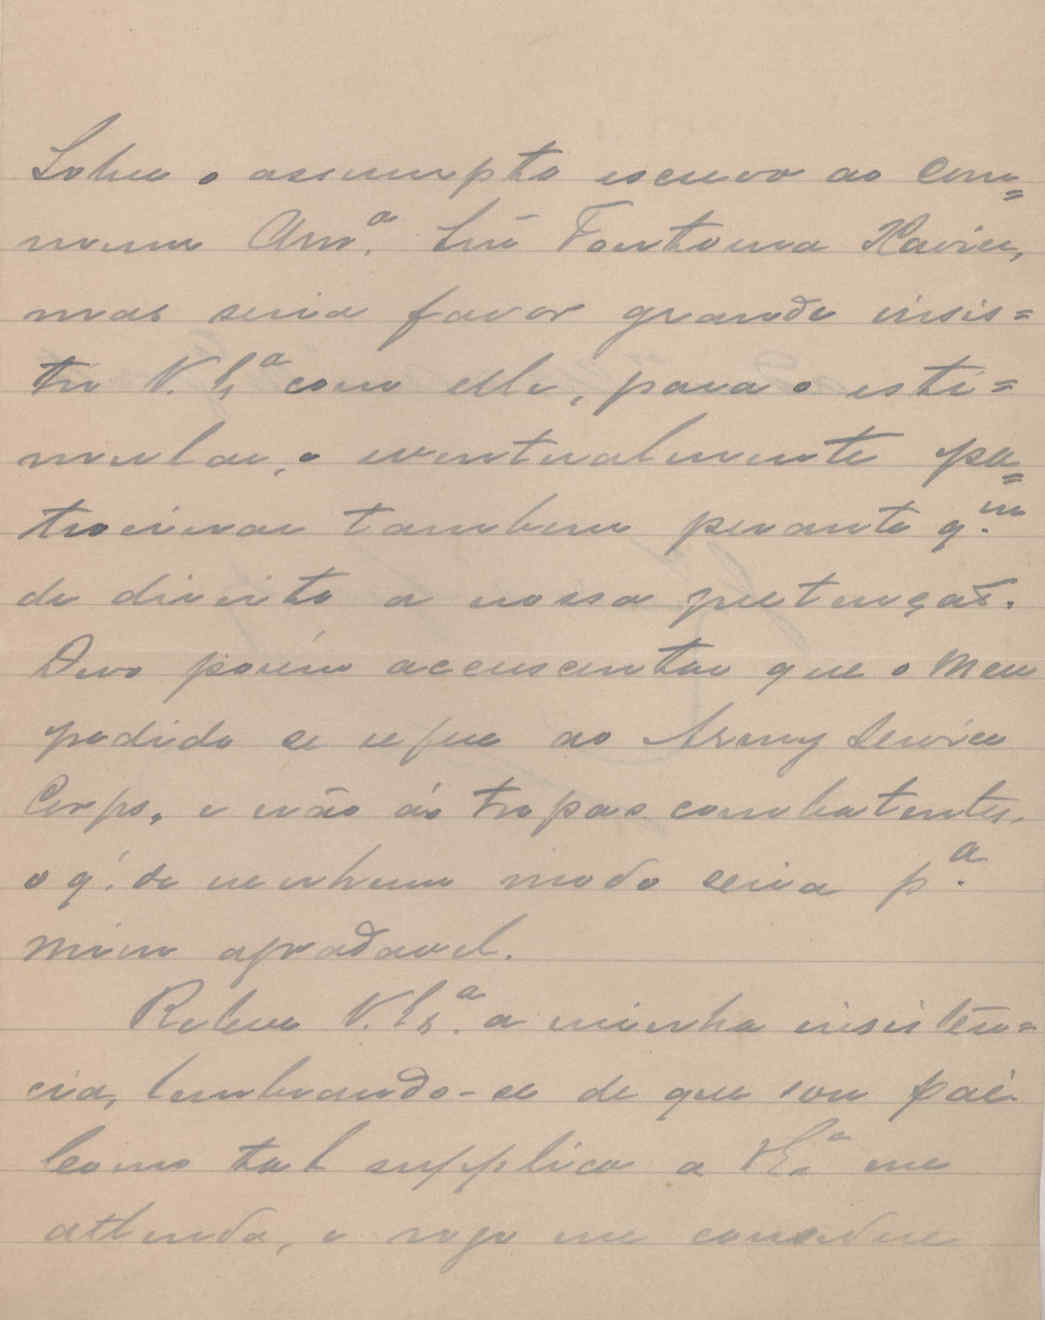 Sobre o assumpto escrevo ao com=
mum Am.º Snr Fontoura Xavier,
mas seria favor grande insis=
tir V. Ex.ª com elle, para o esti=
mular, e eventualmente pa=
trocinar tambem perante q.m
de direito a nossa pretenção.
Devo porém accrescentar que o meu
pedido se refere ao Army Service
Corps, e não ás tropas combatentes,
o q. de nenhum modo seria p.ª
mim agradavel.
Releve V. Ex.ª a minha insistên=
cia, lembrando-se de que sou pae.
Como tal supplico a V. E.ª me
attenda, e rogo me considere